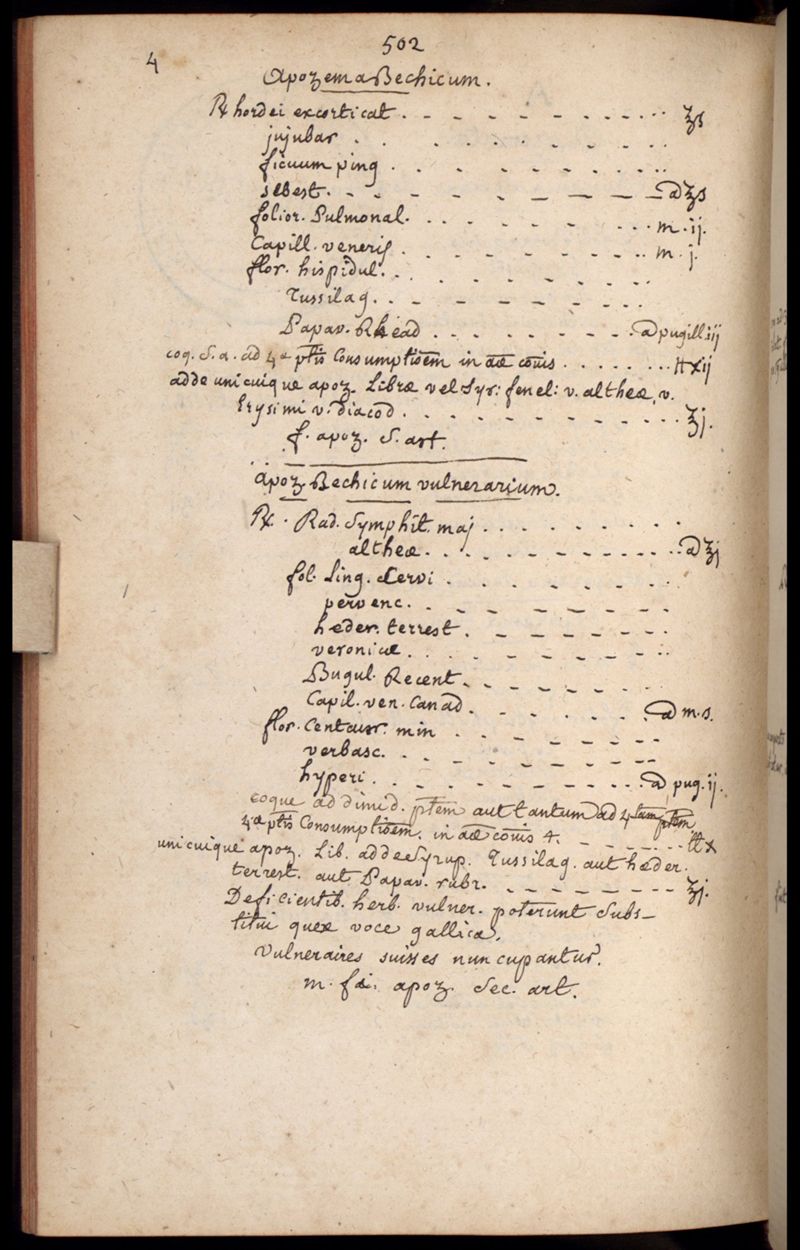 502
4
Apozema Bechicum.
℞ hordei excorticat. ℥s
jujubar.
ficuum ping.
sebest. a ℥s
folior. Pulmonal. m. ij.
Capill. veneris. m. j.
flor. hispidul.
Tussilag.
Papav. Rhead a pugill iij
coq. S. a. ad 4ae ptis Consumptioem in aae cõis ℔ xij
adde unicuique apoz. Librae vel Syr: fenel: v. altheae, v.
Erysimi v. diacod. ℥j.
f. apoz. S. art.
Apoz. Bechicum vulnerarium.
℞. Rad. Symphit. maj.
altheae. a ℥j
fol. Ling. Cervi.
pervenc.
heder. terrest.
veronicae.
Bugul. Recent.
Capil. ven. Canad. a m. s.
flor. Centaur. min.
verbasc.
hyperi. a pug. ij.
coque ad dimid. ptem aut tantum ad 4tam ptem
4ae ptis Consumptioem. in aae cõis 4. ℔ x
unicuique apoz. Lib. adde Syrup. Tussilag. aut heder.
terrest. aut Papav. rubr. ℥j.
Deficientib. herb. vulner. poterunt Subs-
titui quae voce gallica,
Vulneraires suisses nuncupantur.
m. fi. apoz. Sec. art.